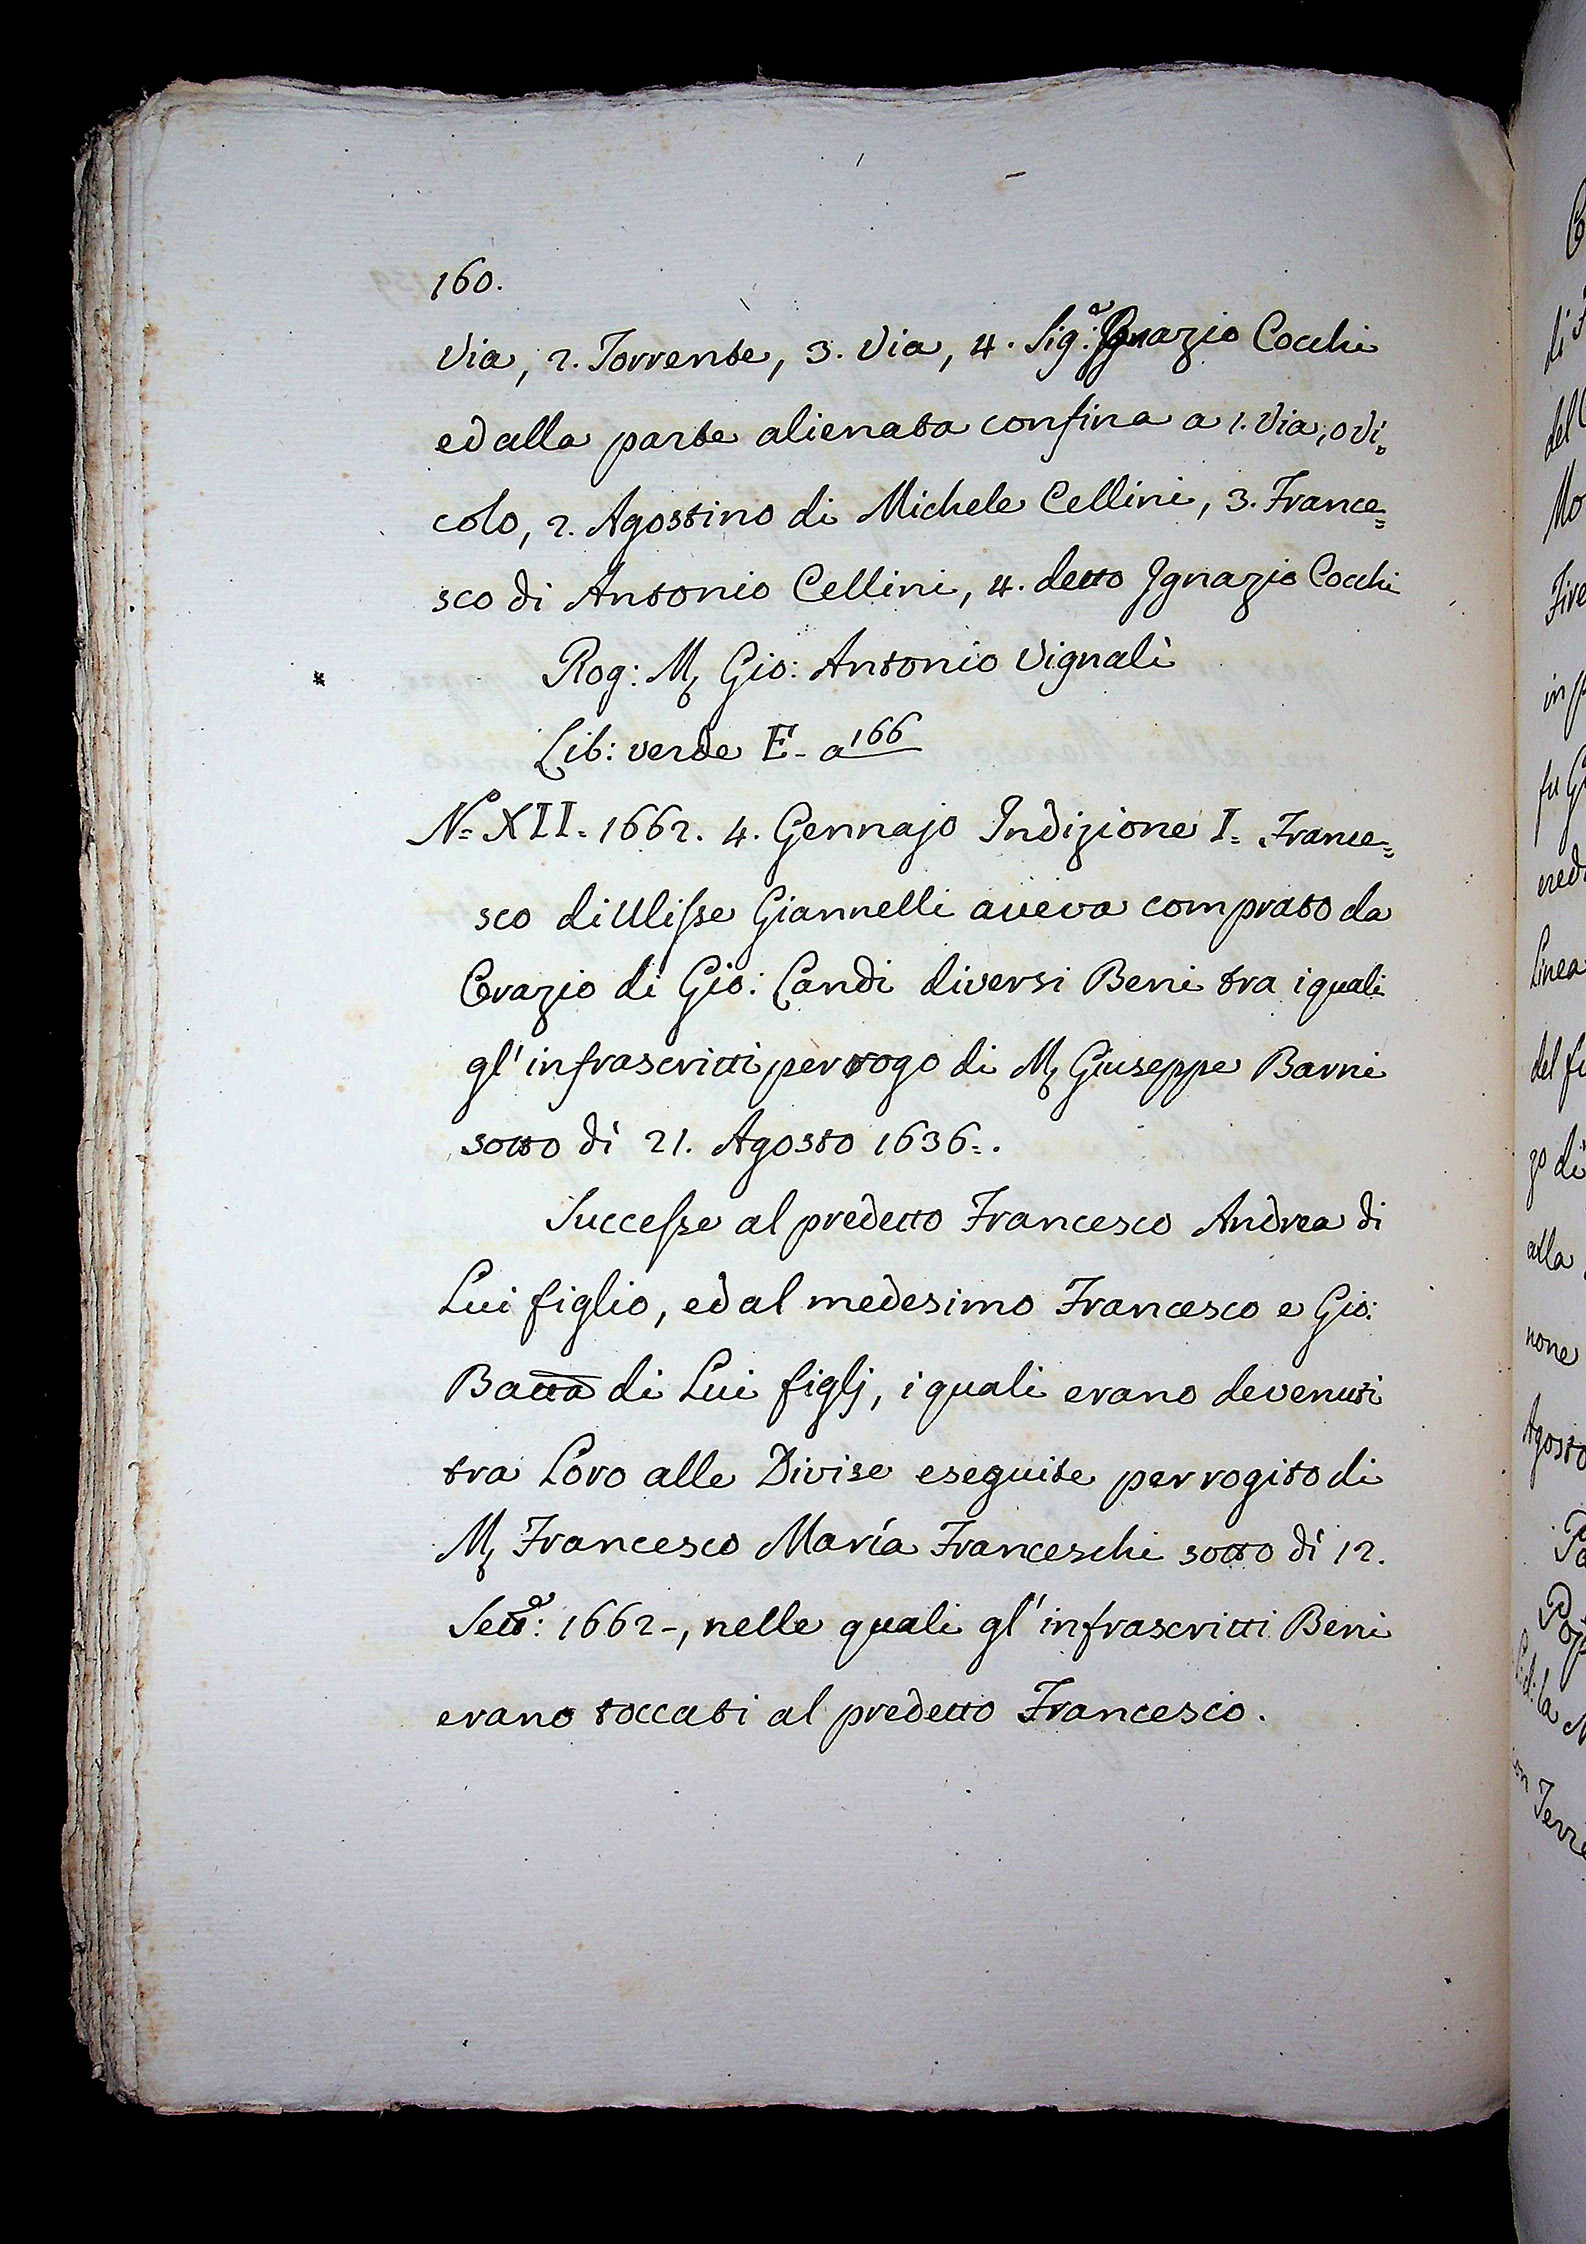 160.
Via, 2. Torrente, 3. Via, 4. Sig.e Ignazio Cocchi
ed alla parte alienata confina a 1. Via, o Vi=
colo, 2. Agostino di Michele Cellini, 3. France=
sco di Antonio Cellini, 4. detto Ignazio Cocchi
Rog: M. Gio: Antonio Vignali
Lib: verde E - a 166
N.o XII. 1662. 4. Gennajo Indizione I. France=
sco di Ulisse Giannelli aveva comprato da
Orazio di Gio: Landi diversi Beni tra i quali
gl' infrascritti per rogo di M. Giuseppe Barni
sotto dì 21. Agosto 1636=.
Successe al predetto Francesco Andrea di
Lui figlio, ed al medesimo Francesco e Gio:
Batta di Lui figlj, i quali erano devenuti
tra Loro alle Divise eseguite per rogito di
M. Francesco María Franceschi sotto dì 12.
Sette: 1662-, nelle quali gl' infrascritti Beni
erano toccati al predetto Francesco.